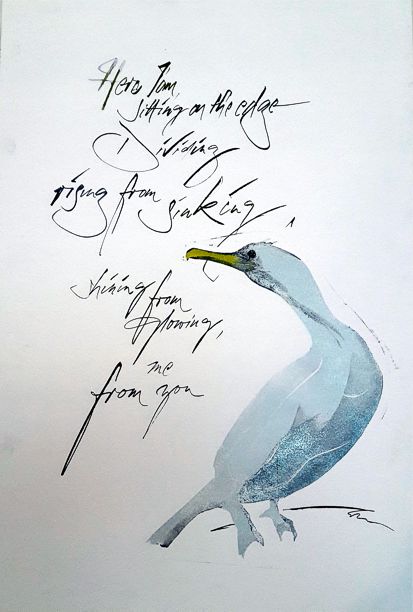 Here I am,
sitting on the edge
Dividing
rising from sinking,
shining from
glowing,
me
from you